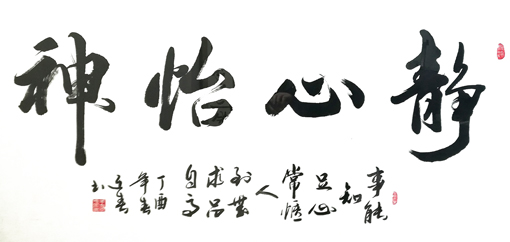 静心怡神
事能
知
足心
常惬
人
到無
求品
自高
丁酉
年春
书